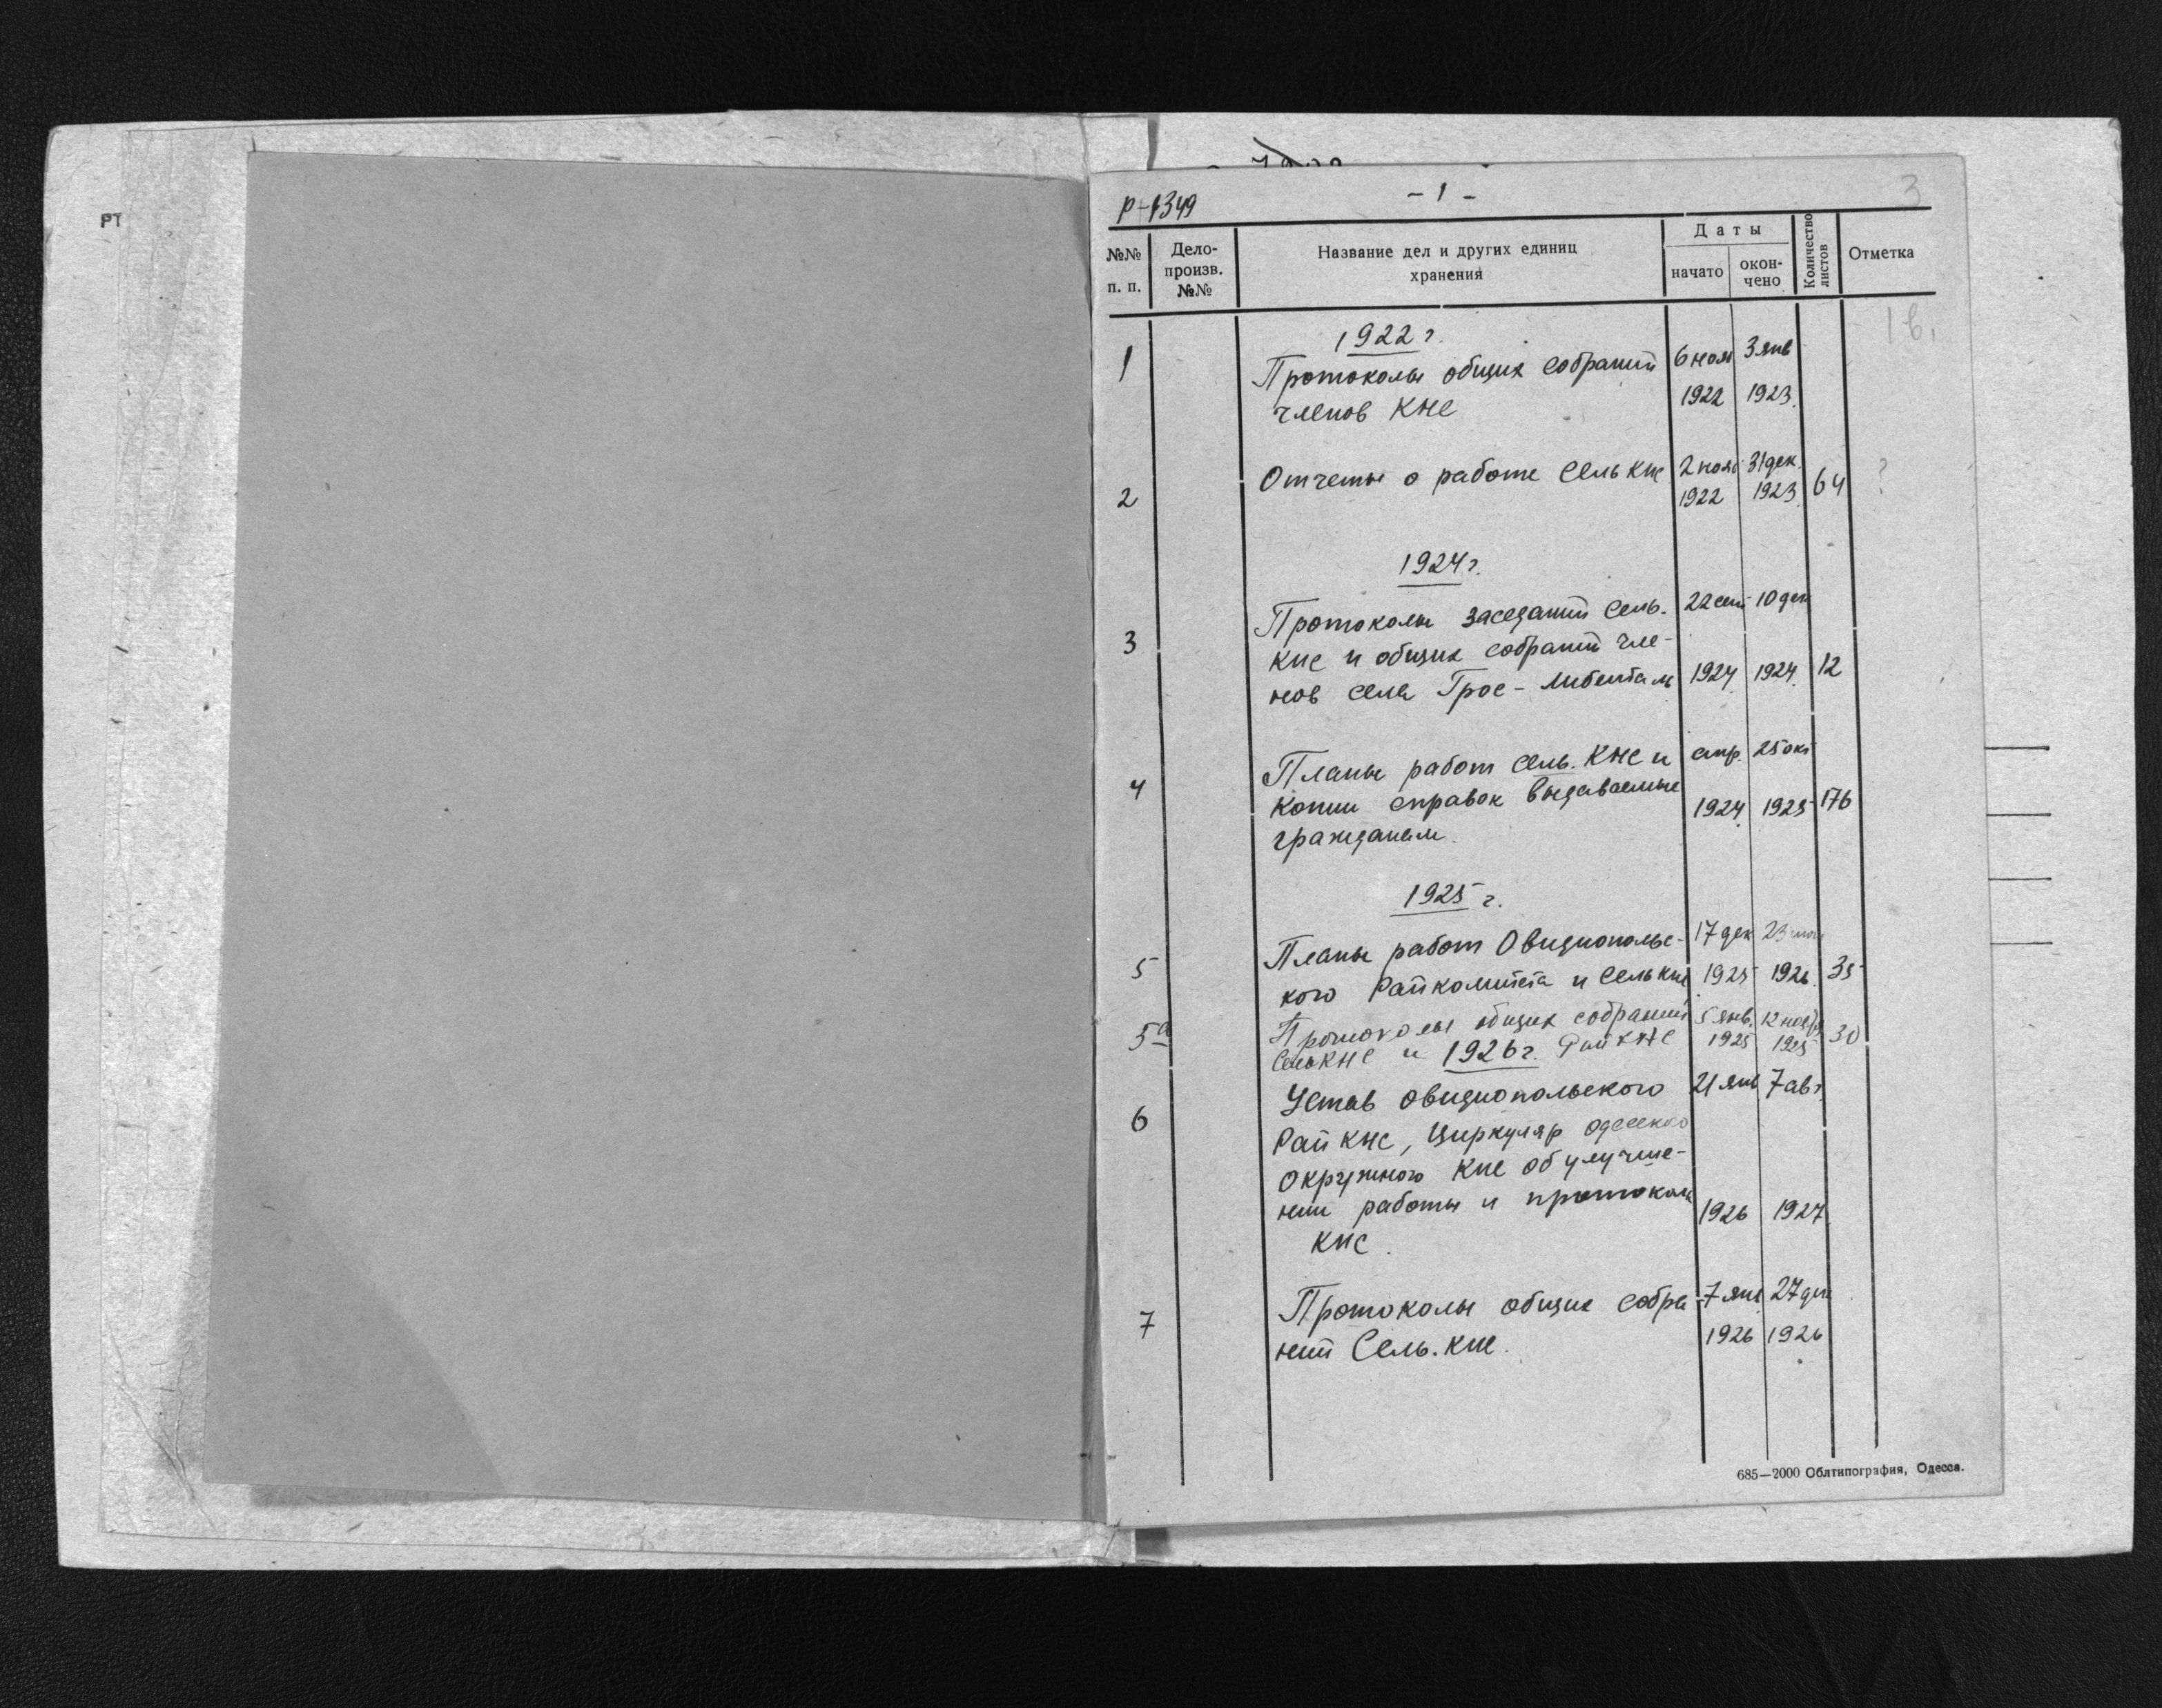 Р-1349
- 1 -
3
№№ п. п.
Дело-произв. №№
Название дел и других единиц хранения
Даты
начато
окончено
Количество листов
Отметка
1922 г.
1
Протоколы общих собраний 6 ноя 3 янв
членов КНС 1922 1923.
Отчеты о работе Сель КНС 2 нояб 31 дек.
2 1922 1923 64 ?
1924 г.
Протоколы заседаний Сель. 22 сен 10 дек
3 КНС и общих собраний чле-
нов села Грос-Либенталь 1924 1924 12
Планы работ Сель. КНС и апр. 25 окт
4 копии справок выдаваемые 1924 1925 176
гражданам.
1925 г.
Планы работ Овидиопольс- 17 дек 23
5 кого Райкомитета и Сель КНС 1925 1926 35
5а Протоколы общих собраний 5 янв. 12 нояб 30
СельКНС и РайКНС 1925 1925
1926 г.
Устав Овидиопольского 21 янв 7 авг
6 Рай КНС, Циркуляр Одесского
Окружного КНС об улучше-
нии работы и протоколы 1926 1927
КНС.
Протоколы общих собра- 7 янв 27 дек
7 ний Сель. КНС. 1926 1926
685—2000 Облтипография, Одесса.